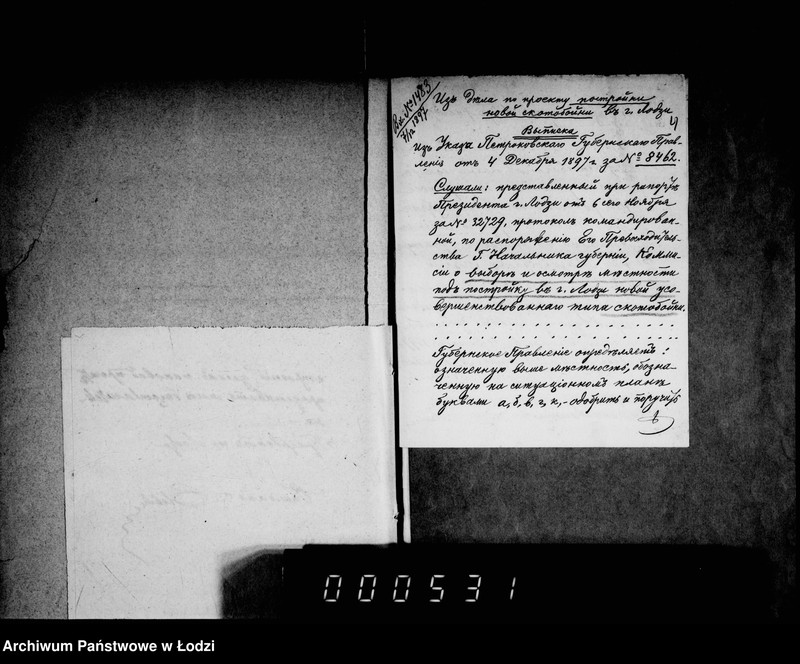 Вх. № 1483
7/XII 1897
Изъ дѣла по проекту постройки
новой скотобойни въ г. Лодзи
4
Выписка
изъ Указа Петроковскаго Губернскаго Прав-
ленія отъ 4 Декабря 1897 г. за № 8462.
Слушали: представленный при рапортѣ
Президента г. Лодзи отъ 6 сего Ноября
за № 32729, протоколъ командирован-
ной, по распоряженію Его Превосходитель-
ства Г. Начальника губерніи, Комми-
сіи о выборѣ и осмотрѣ мѣстности
подъ постройку въ г. Лодзи новой усо-
вершенствованнаго типа скотобойни.
Губернское Правленіе опредѣляетъ:
означенную выше мѣстность, обозна-
ченную на ситуаціонномъ планѣ
буквами а, б, в, г, к, - одобрить и поручить
000531
Archiwum Państwowe w Łodzi